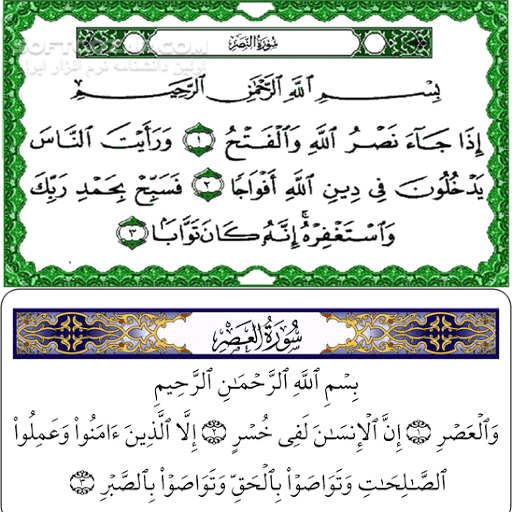 SOFTGOZAR.COM
اولین دانشنامه نرم افزار ایران
سُورَةُ النَّصْرِ
بِسْمِ ٱللَّهِ ٱلرَّحْمَٰنِ ٱلرَّحِيمِ
إِذَا جَآءَ نَصْرُ ٱللَّهِ وَٱلْفَتْحُ ١ وَرَأَيْتَ ٱلنَّاسَ
يَدْخُلُونَ فِى دِينِ ٱللَّهِ أَفْوَاجًا ٢ فَسَبِّحْ بِحَمْدِ رَبِّكَ
وَٱسْتَغْفِرْهُ ۚ إِنَّهُۥ كَانَ تَوَّابًۢا ٣
سُورَةُ العَصْرِ
بِسْمِ ٱللَّهِ ٱلرَّحْمَٰنِ ٱلرَّحِيمِ
وَٱلْعَصْرِ ١ إِنَّ ٱلْإِنسَٰنَ لَفِى خُسْرٍ ٢ إِلَّا ٱلَّذِينَ ءَامَنُوا۟ وَعَمِلُوا۟
ٱلصَّٰلِحَٰتِ وَتَوَاصَوْا۟ بِٱلْحَقِّ وَتَوَاصَوْا۟ بِٱلصَّبْرِ ٣